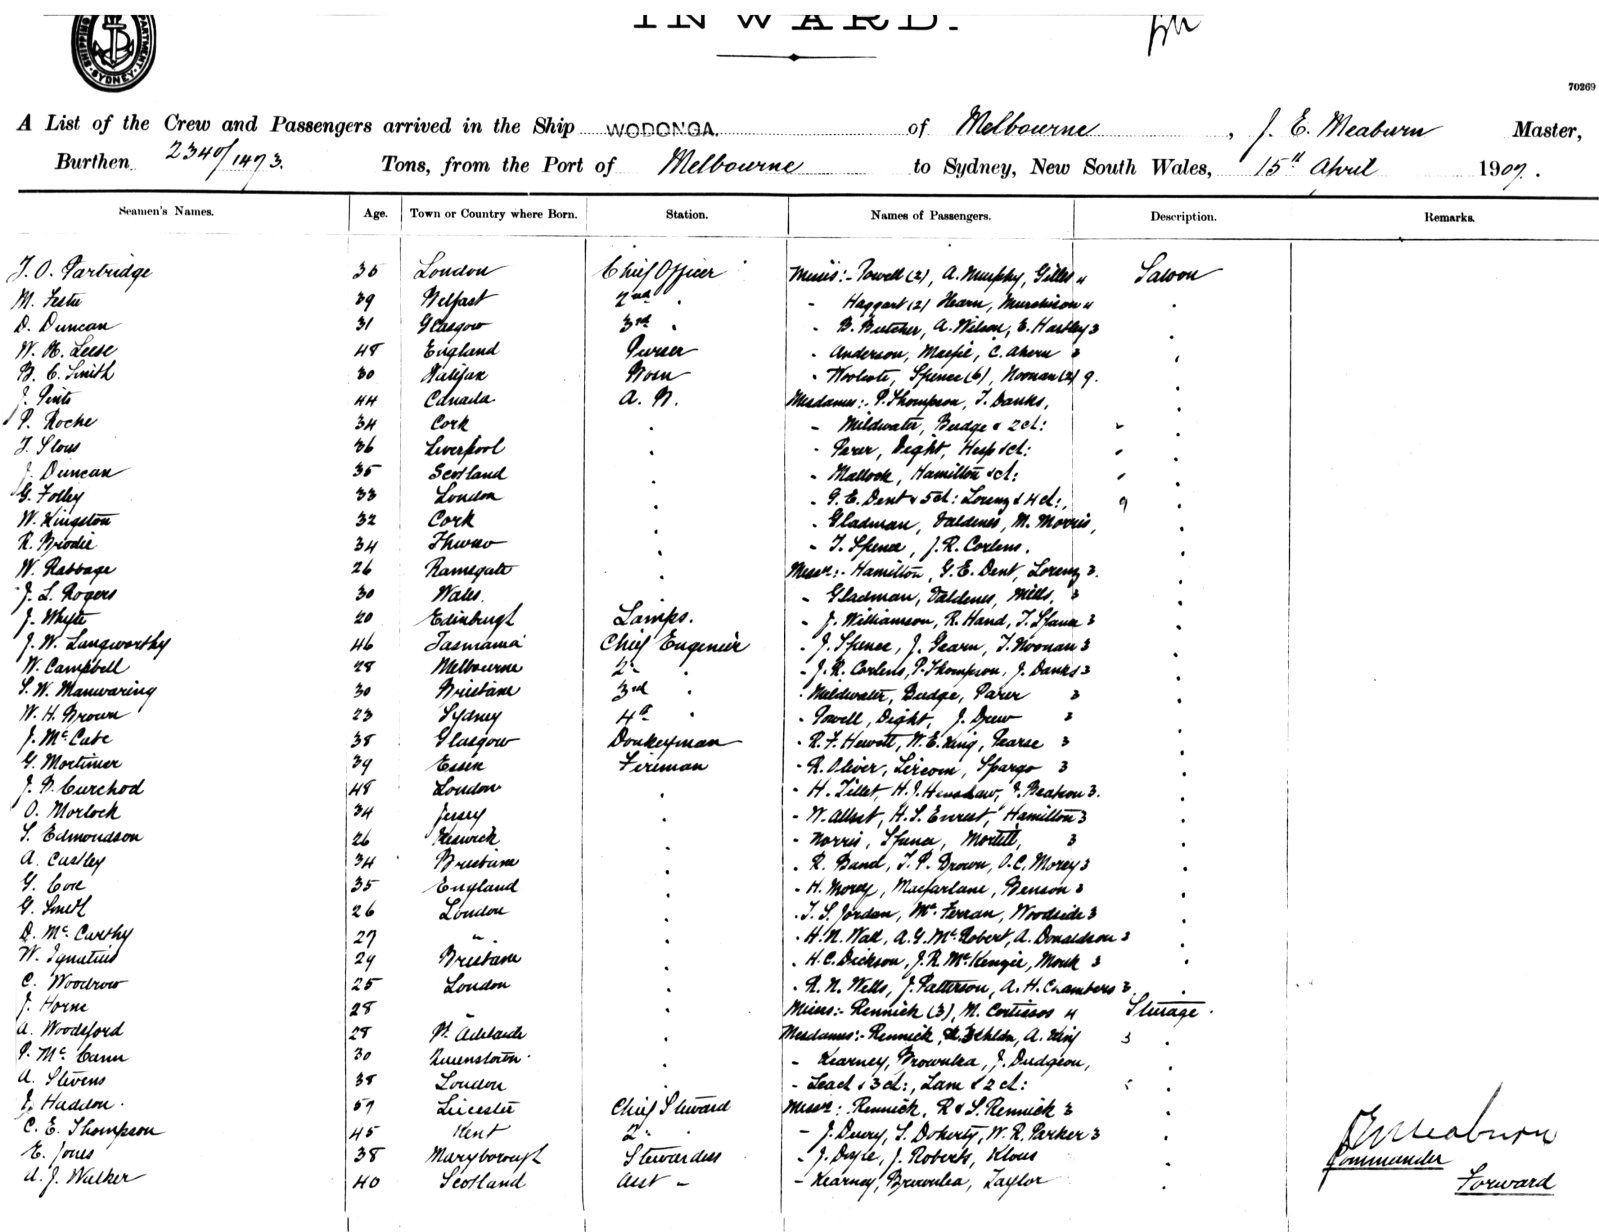 INWARD.
SHIPPING DEPARTMENT. SYDNEY
70269
A List of the Crew and Passengers arrived in the Ship WODONGA. of Melbourne, J. E. Meaburn Master,
Burthen 2340/1473. Tons, from the Port of Melbourne to Sydney, New South Wales, 15th April 1907.
Seamen's Names. Age. Town or Country where Born. Station. Names of Passengers. Description. Remarks.
J. O. Partridge 36 London Chief Officer Misses:- Powell (2), A. Murphy, Gilles 4 Saloon
M. Festu 39 Belfast 2nd " - Haggart (2) Hearn, Murchison 4
D. Duncan 31 Glasgow 3rd " - B. Butcher, A. Wilson, E. Hartley 3
W. H. Leese 48 England Purser - Anderson, Macfie, C. Ahern 3
B. C. Smith 30 Halifax Bosn - Woolcote, Spence (6), Noonan (2) 9.
J. Pinto 44 Canada A. B. Mesdames:- P. Thompson, J. Danks,
P. Roche 34 Cork - Mildwater, Budge & 2 ch:
J. Slous 36 Liverpool - Parer, Dight, Hesp & ch:
J. Duncan 35 Scotland - Mallock, Hamilton & ch:
G. Folley 33 London - G. E. Dent & 5 ch: Lorenz & 4 ch:, 9
W. Kingston 32 Cork - Gladman, Valdenes, M. Morris,
R. Brodie 34 Thurso - T. Spence, J. R. Corlens.
W. Rabbage 26 Ramsgate Messrs:- Hamilton, G. E. Dent, Lorenz 3.
J. L. Rogers 30 Wales - Gladman, Valdenes, Mills, 3
J. Whyte 20 Edinburgh Lamps. - J. Williamson, R. Hand, T. Spence 3
J. W. Langworthy 46 Tasmania Chief Engenier - J. Spence, J. Gearn, T. Noonan 3
W. Campbell 28 Melbourne 2" " - J. R. Corlens, P. Thompson, J. Danks 3
S. W. Manwaring 30 Brisbane 3rd " - Mildwater, Budge, Parer 3
W. H. Brown 23 Sydney 4th " - Powell, Dight, J. Drew 3
J. McCabe 38 Glasgow Donkeyman - R. F. Hewett, W. E. King, Pearse 3
G. Mortimer 39 Essex Fireman - R. Oliver, Spargo 3
J. B. Curchod 48 London - H. Tillet, H. J. Henshaw, J. Beatson 3.
O. Morlock 34 Jersey - W. Albert, H. S. Everest, Hamilton 3
S. Edmondson 26 Keswick - Norris, Spence, Mortill, 3
A. Castley 34 Brisbane - R. Band, T. P. Brown, O. C. Morey 3
G. Core 35 England - H. Morey, Macfarlane, Benson 3
G. Smith 26 London - T. S. Jordan, McFerran, Woodside 3
D. McCarthy 27 " - H. N. Wall, A. G. McRobert, A. Donaldson 3
W. Ignatius 24 Brisbane - H. C. Dickson, J. R. McKenzie, Monk 3
C. Woodrow 25 London - R. N. Wells, J. Patterson, A. H. Chambers 3.
J. Horne 28 " Misses:- Rennick (3), M. Cortissos 4 Sturage.
A. Woodsford 28 Pt. Adelaide Mesdames:- Rennick, & 3 chldn, A. King 3
P. McCann 30 Queenstown - Kearney, Brownlea, J. Dudgeon,
A. Stevens 38 London - Leach & 3 ch:, Lam & 2 ch:
E. Haddon. 59 Leicester Chief Steward Messrs: Rennick, R & S. Rennick 3
C. E. Thompson 45 Kent 2" " - J. Deery, S. Doherty, W. R. Parker 3
E. Jones 38 Maryborough Stewardess - J. Doyle, J. Roberts, Klous
A. J. Walker 40 Scotland Asst - - Kearney, Brownlea, Taylor
J E Meaburn
Commander
Forward